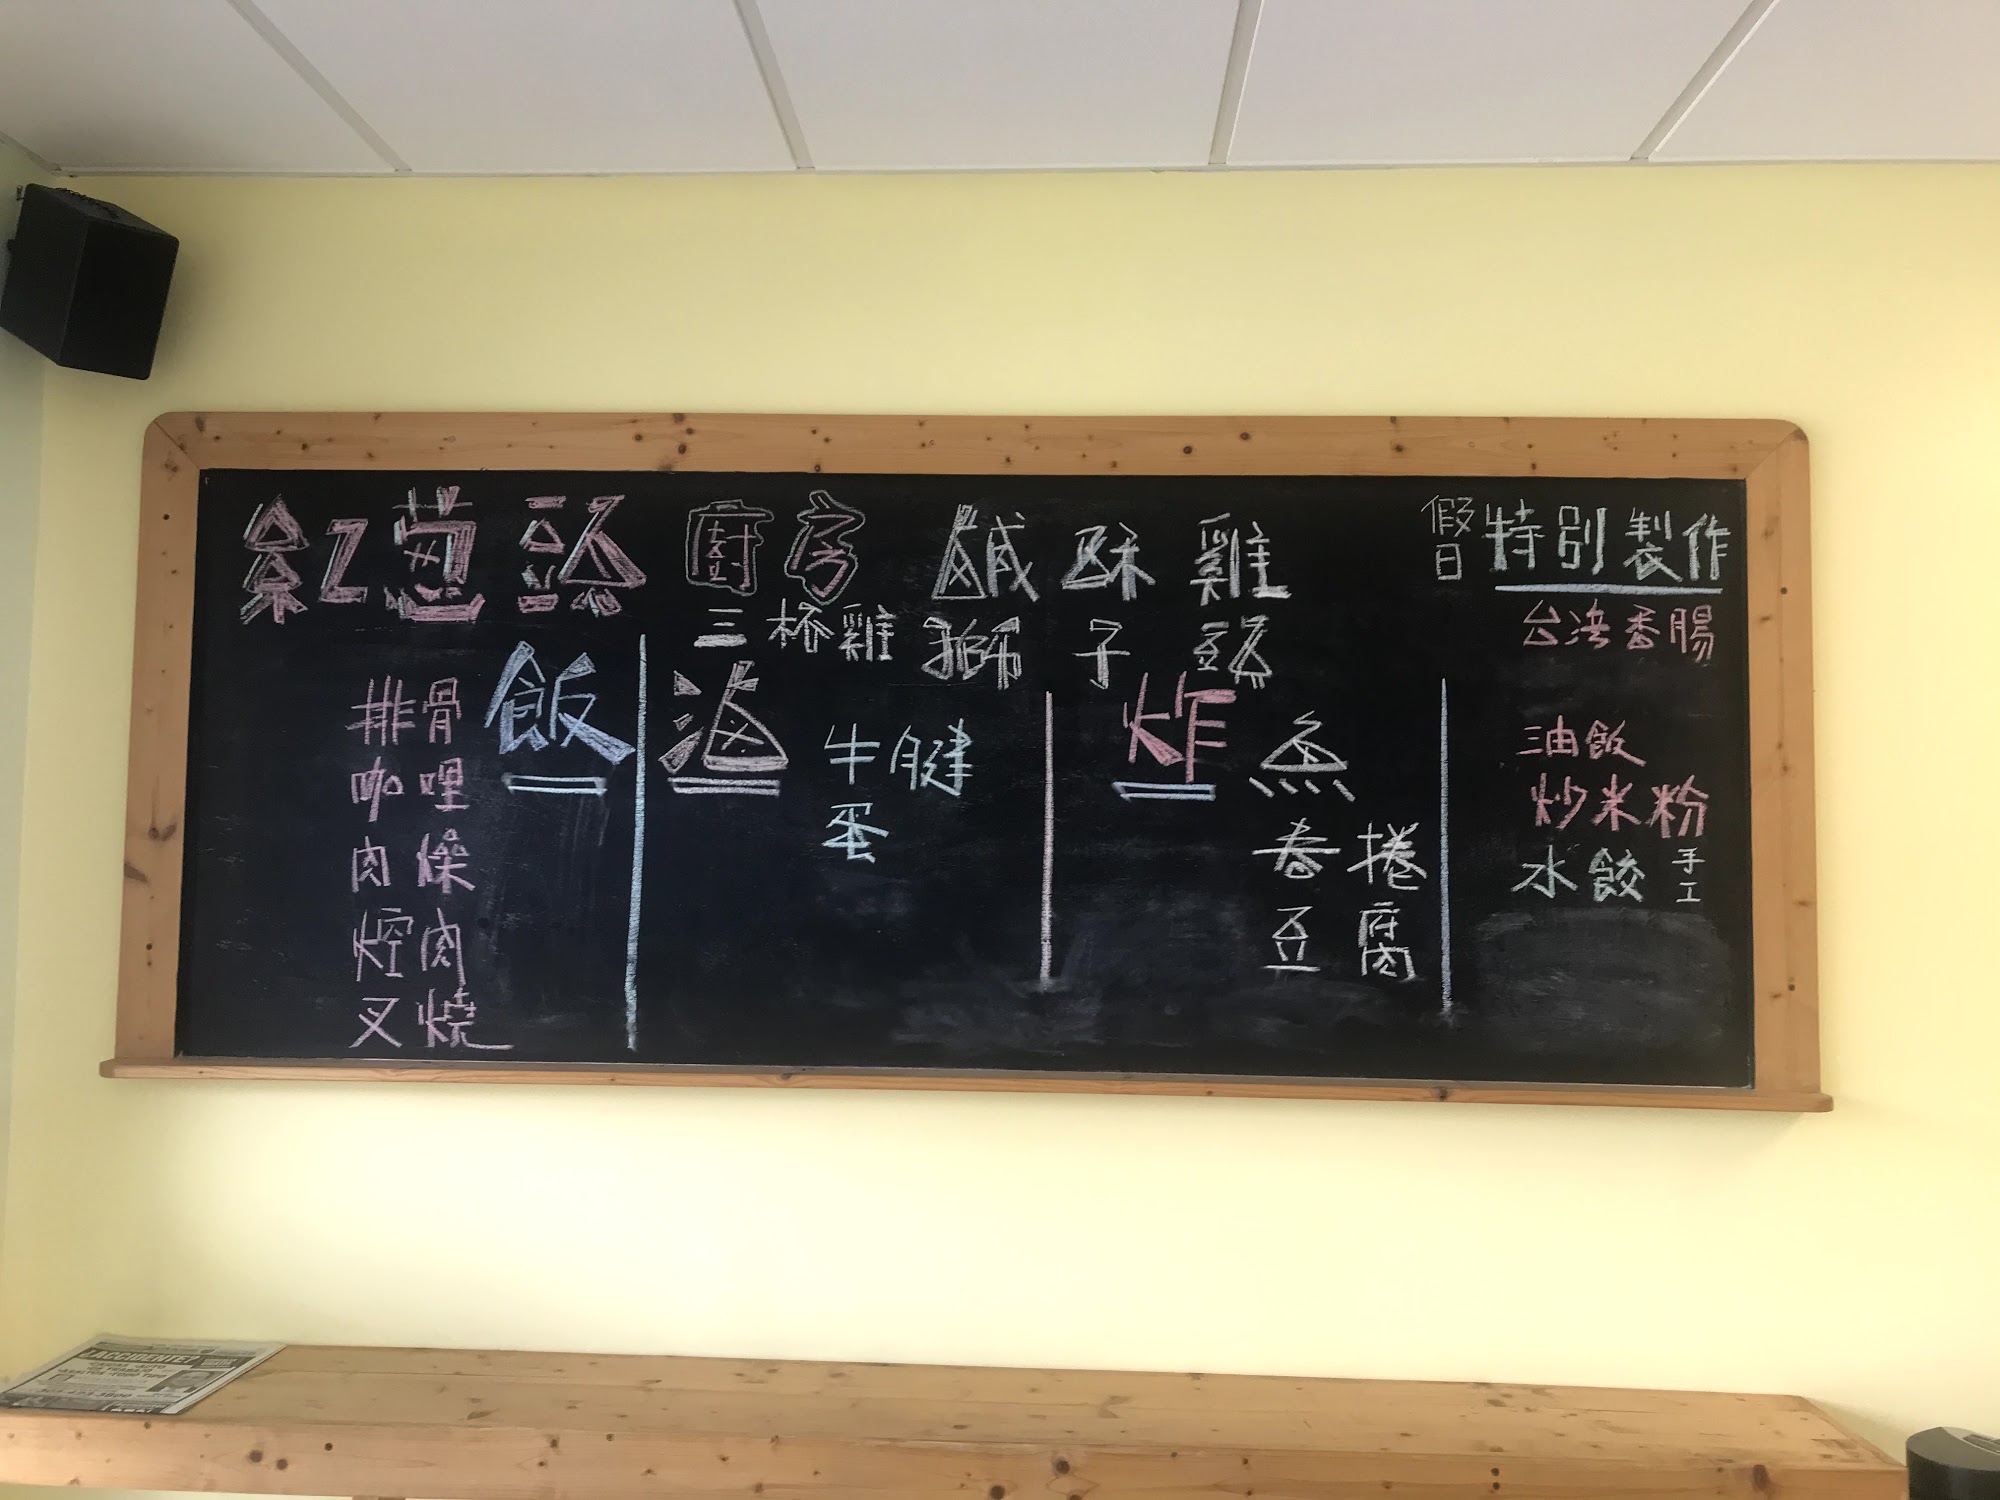 紅蔥頭廚房
鹹酥雞
三杯雞
獅子頭
飯
排骨
咖哩
肉燥
焢肉
叉燒
滷
牛腱
蛋
炸
魚
春捲
豆腐
假日特別製作
台湾香腸
油飯
炒米粉
水餃 手工
¿ACCIDENTE?